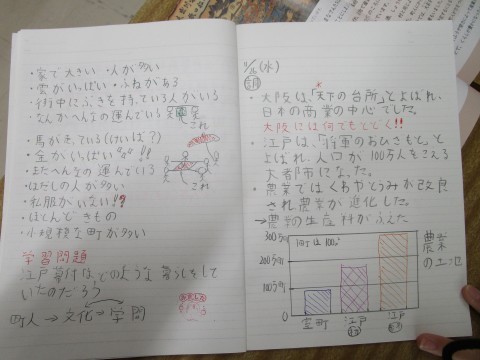 ・家で大きい ・人が多い
・雲がいっぱい ・ふねがある
・街中にぶきを持っている人がいる
・なんかへんなの運んでいる
これ
・馬がそっている(けいば?)
・金がいっぱい
・まだへんなの運んでいる
・はだしの人が多い
これ
・私服がいない!!
・ほとんど きもの
・小規模な町が多い
学習問題
江戸幕府は、どのような暮らしをして
いたのだろう
町人→文化=学問
(水)
・大阪は、「天下の台所」とよばれ、
日本の商業の中心でした。
大阪には何でもとどく!!
・江戸は、「将軍のおひざもと」と
よばれ、人口が100万人をこえる
大都市になった。
・農業ではくわやとうみが改良
され農業が進化した。
→農業の生産料がふえた
300万町
200万町
100万町
0
室町
江戸
江戸
農業
の土地